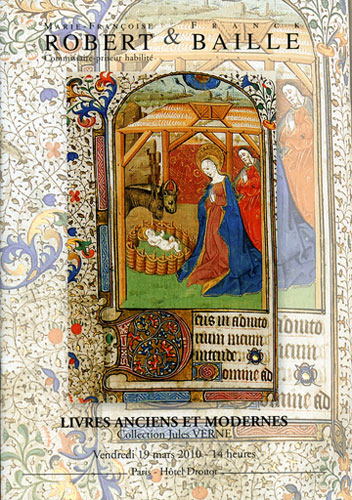 MARIE-FRANÇOISE FRANCK
ROBERT & BAILLE
Commissaire-priseur habilité
Deus in adiuto
rium meum
intende.
Domine ad
LIVRES ANCIENS ET MODERNES
Collection Jules VERNE
Vendredi 19 mars 2010 - 14 heures
Paris - Hôtel Drouot